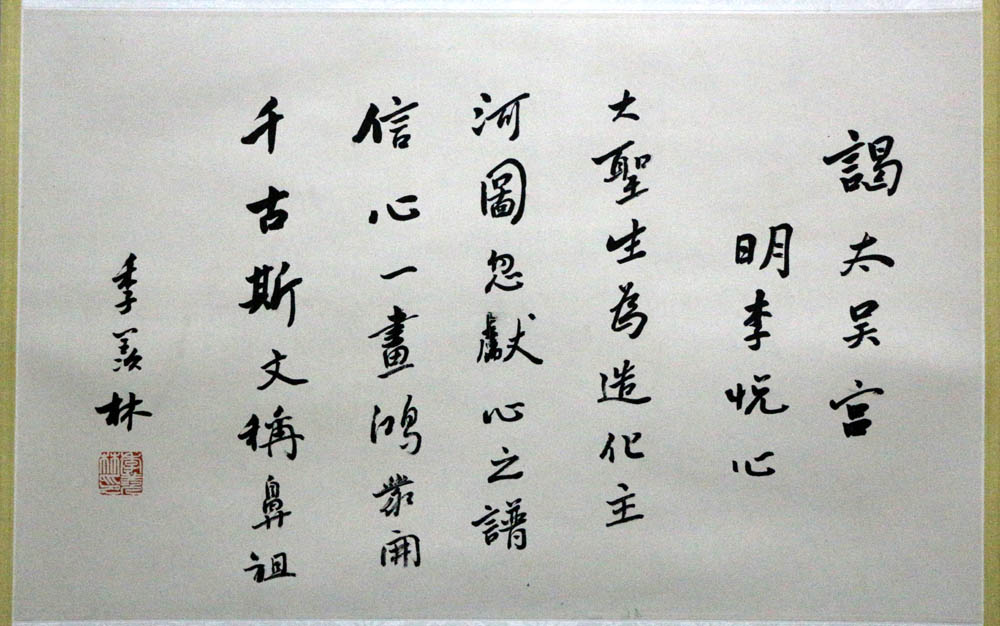 謁太吴宫
明李悦心
大聖生為造化主
河圖忽獻心之譜
信心一畫鴻開
千古斯文稱鼻祖
季羡林
季羡林印